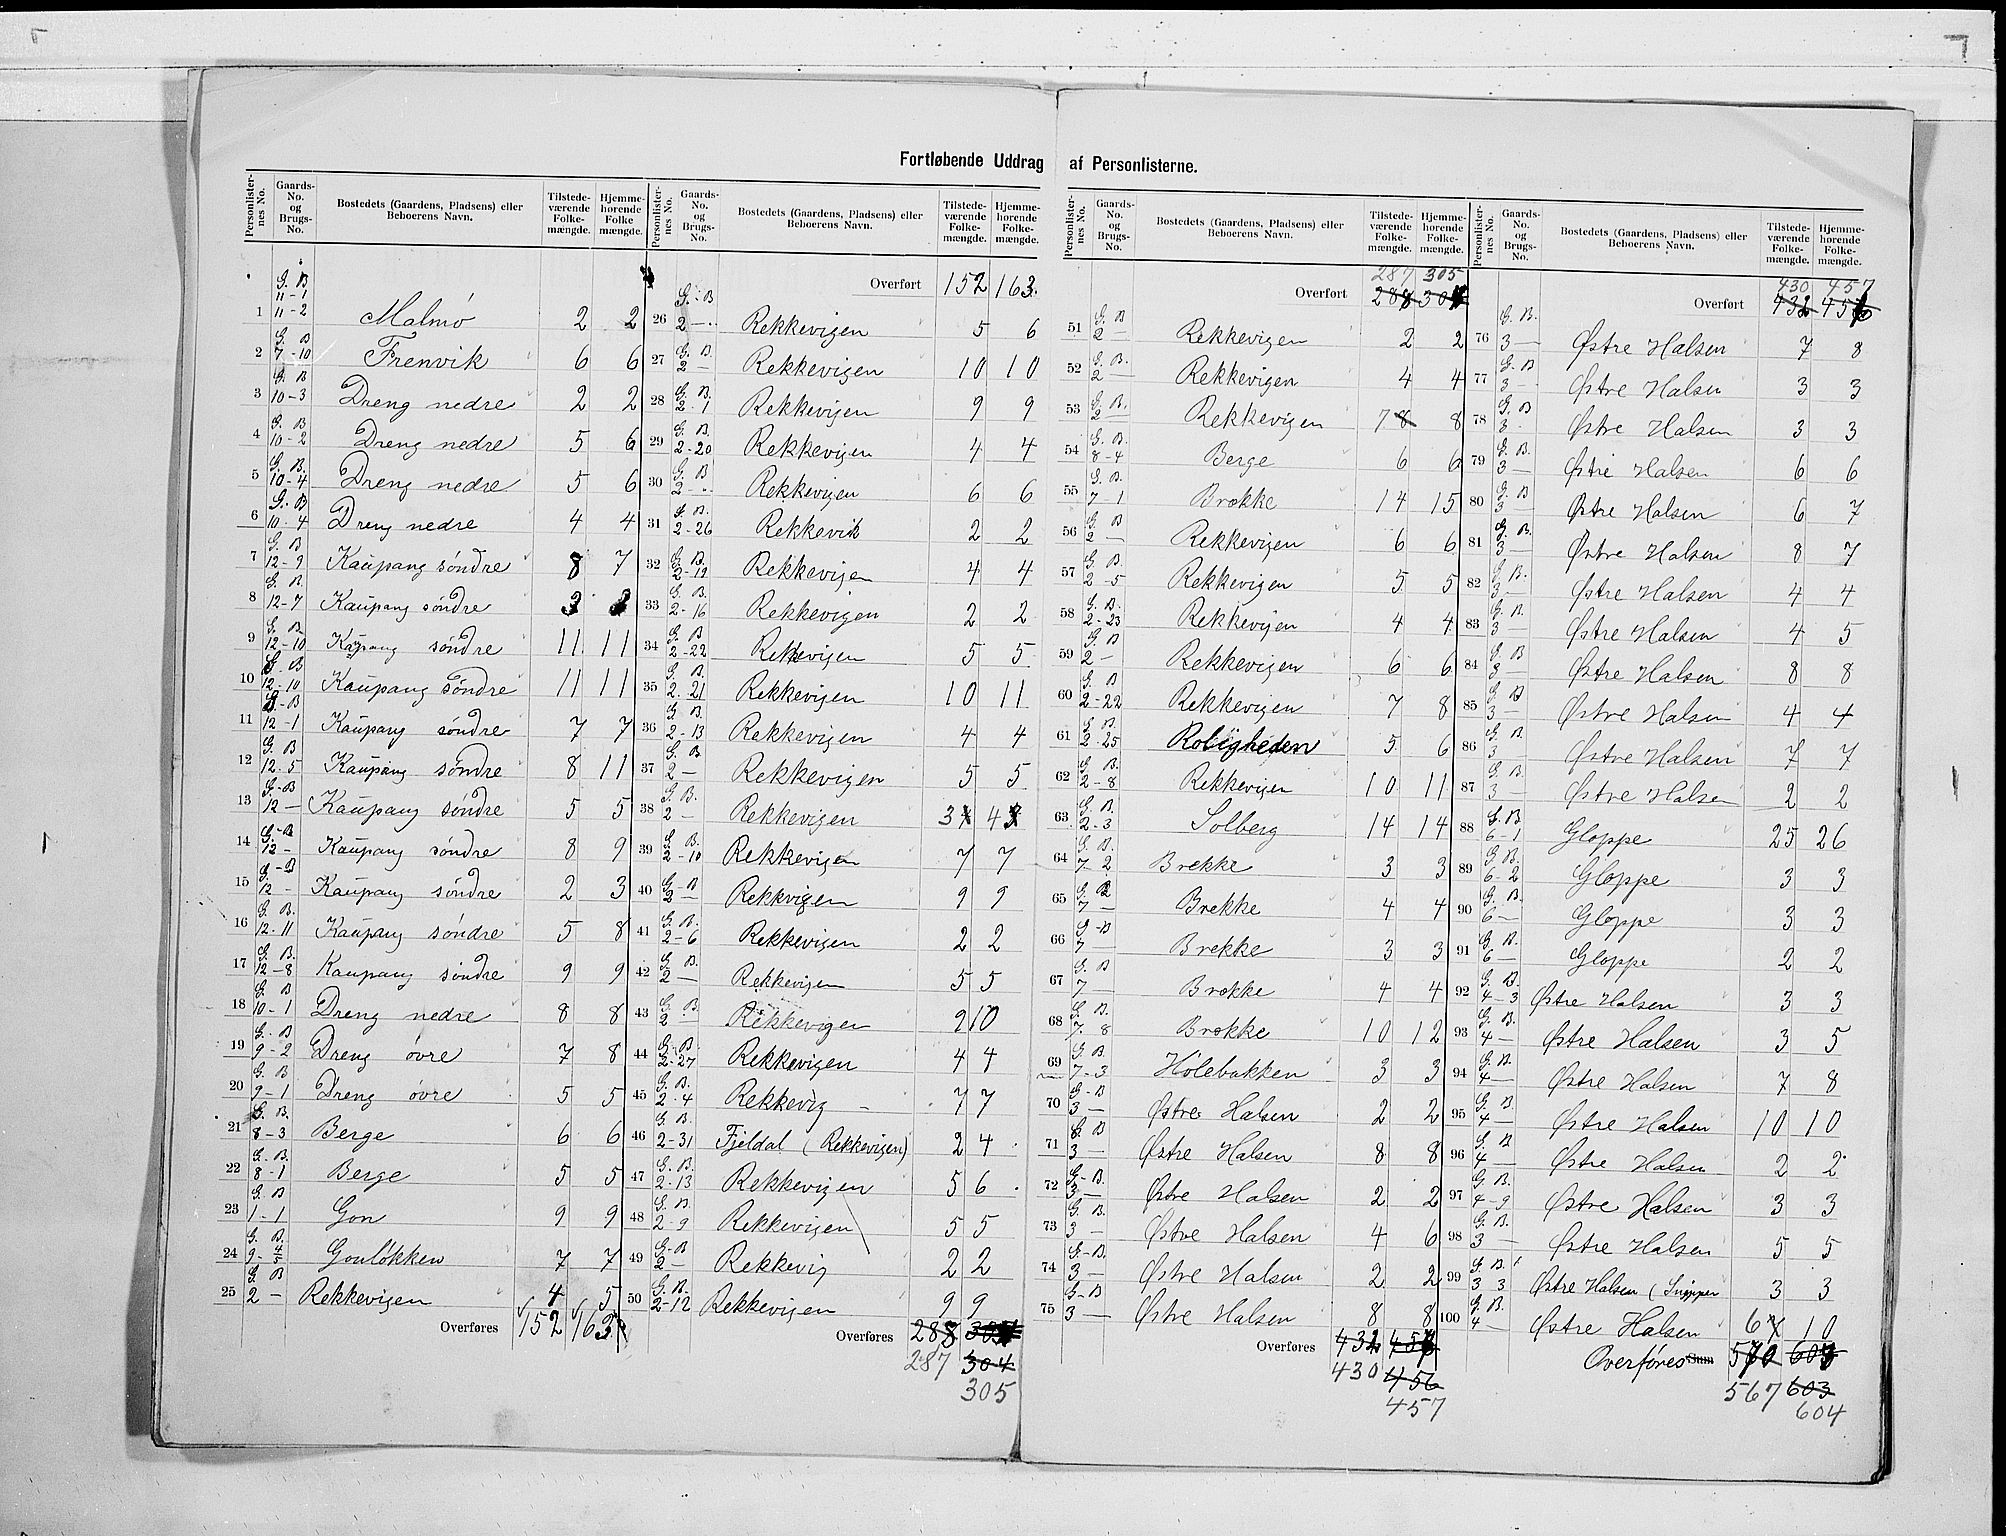 Fortløbende Uddrag af Personlisterne.
Personlisternes No. | Gaards-No. og Brugs-No. | Bostedets (Gaardens, Pladsens) eller Beboerens Navn. | Tilstedeværende Folkemængde. | Hjemmehørende Folkemængde.
1 G. B 11-1 11-2 Malmö 2 2
2 G. B 7-10 Frenvik 6 6
3 G. B 10-3 Dreng nedre 2 2
4 G. B 10-2 Dreng nedre 5 6
5 G. B. 10-4 Dreng nedre 5 6
6 G. B 10-4 Dreng nedre 4 4
7 G. B 12-9 Kaupang söndre 8 7
8 G. B. 12-7 Kaupang söndre
9 G. B. 12-10 Kaupang söndre 11 11
10 G. B 12-10 Kaupang söndre 11 11
11 G. B 12-1 Kaupang söndre 7 7
12 G. B 12-5 Kaupang söndre 8 11
13 G.-B 12 - Kaupang söndre 5 5
14 G.-B 12 - Kaupang söndre 8 9
15 G.-B 12 - Kaupang söndre 2 3
16 G. B. 12-11 Kaupang söndre 5 8
17 G. B. 12-8 Kaupang söndre 9 9
18 G. B 10-1 Dreng nedre 8 8
19 G. B 9-2 Dreng övre 7 8
20 G. B 9-1 Dreng övre 5 5
21 G. B. 8-3 Berge 6 6
22 G.-B. 8-1 Berge 5 5
23 G. B 1-1 Gon 9 9
24 G. B. 9-4/5 Gonlökken 7 7
25 G. B 2 - Rekkevigen 4 5
Overføres 152 163
Overført 152 163.
26 G.-B 2 - Rekkevigen 5 6
27 G. B. 2 - Rekkevigen 10 10
28 G. B. 2-1 Rekkevigen 9 9
29 G. B. 2-20 Rekkevigen 4 4
30 G. B 2 - Rekkevigen 6 6
31 G. B. 2-26 Rekkevik 2 2
32 G. B. 2-19 Rekkevigen 4 4
33 G. B. 2-16 Rekkevigen 2 2
34 G. B 2-22 Rekkevigen 5 5
35 G. B. 2-21 Rekkevigen 10 11
36 G. B. 2-13 Rekkevigen 4 4
37 G. B 2 - Rekkevigen 5 5
38 G. B. 2 - Rekkevigen 3 4
39 G. B. 2-10 Rekkevigen 7 7
40 G-B 2 - Rekkvigen 9 9
41 G. B. 2-6 Rekkevigen 2 2
42 G. B 2 - Rekkevigen 5 5
43 G. B. 2 - Rekkevigen 9 10
44 G. B. 2-27 Rekkevigen 4 4
45 G. B. 2-4 Rekkevig - 7 7
46 G. B. 2-31 Fjeldal (Rekkevigen) 2 4
47 G. B. 2-13 Rekkevigen 5 6
48 G. B. 2-9 Rekkevigen 5 5
49 G-B 2 - Rekkevig 2 2
50 G. B. 2-12 Rekkevigen 9 9
Overføres 288
287 304
305
287 305
Overført 288
51 G. B 2 - Rekkevigen 2 2
52 G. B. 2 - Rekkevigen 4 4
53 G. B. 2 - Rekkevigen 7 8 8
54 G. B. 8-4 Berge 6 6
55 G. B. 7-1 Brekke 14 15
56 G. B 2 - Rekkevigen 6 6
57 G. B. 2-5 Rekkevigen 5 5
58 G. B. 2-23 Rekkevigen 4 4
59 G. B 2 - Rekkevigen 6 6
60 G. B 2-22 Rekkevigen 7 8
61 G. B. 2-25 Roligheden 5 6
62 G. B. 2-8 Rekkevigen 10 11
63 G. B. 2-3 Solberg 14 14
64 G. B. 7-2 Brekke 3 3
65 G. B 7 - Brekke 4 4
66 G-B 7 - Brekke 3 3
67 G. B 7 - Brekke 4 4
68 G. B. 7-8 Brekke 10 12
69 G. B. 7-3 Hölebakken 3 3
70 G-B 3 - Østre Halsen 2 2
71 G. B 3 - Østre Halsen 8 8
72 G-B. 3 - Østre Halsen 2 2
73 G. B. 3 - Østre Halsen 4 6
74 G.-B. 3 - Østre Halsen 2 2
75 G-B 3 - Østre Halsen 8 8
Overføres 432
430 456
457
430 457
Overført 432
76 G. B. 3 - Østre Halsen 7 8
77 G. B 3 - Østre Halsen 3 3
78 G. B 3 Østre Halsen 3 3
79 G. B. 3 - Østre Halsen 6 6
80 G. B 3 - Østre Halsen 6 7
81 G. B. 3 - Østre Halsen 8 7
82 G. B. 3 - Østre Halsen 4 4
83 G. B. 3 Østre Halsen 4 5
84 G. B 3 - Østre Halsen 8 8
85 G. B 3 - Østre Halsen 4 4
86 G. B 3 Østre Halsen 7 7
87 G. B. 3 - Østre Halsen 2 2
88 G. B. 6-1 Gloppe 25 26
89 G. B. 6-2 Gloppe 3 3
90 G. B. 6 - Gloppe 3 3
91 G. B. 6 - Gloppe 2 2
92 G. B. 4-3 Østre Halsen 3 3
93 G. B. 4 - Østre Halsen 3 5
94 G. B. 4 - Østre Halsen 7 8
95 G. B 4 - Østre Halsen 10 10
96 G. B 4 - Østre Halsen 2 2
97 G. B. 4-9 Østre Halsen 3 3
98 G. B. 3 - Østre Halsen 5 5
99 G. B 3 3 Østre Halsen 3 3
100 G. B. 4 - Østre Halsen 6 10
Overføres Sum
567 603
604